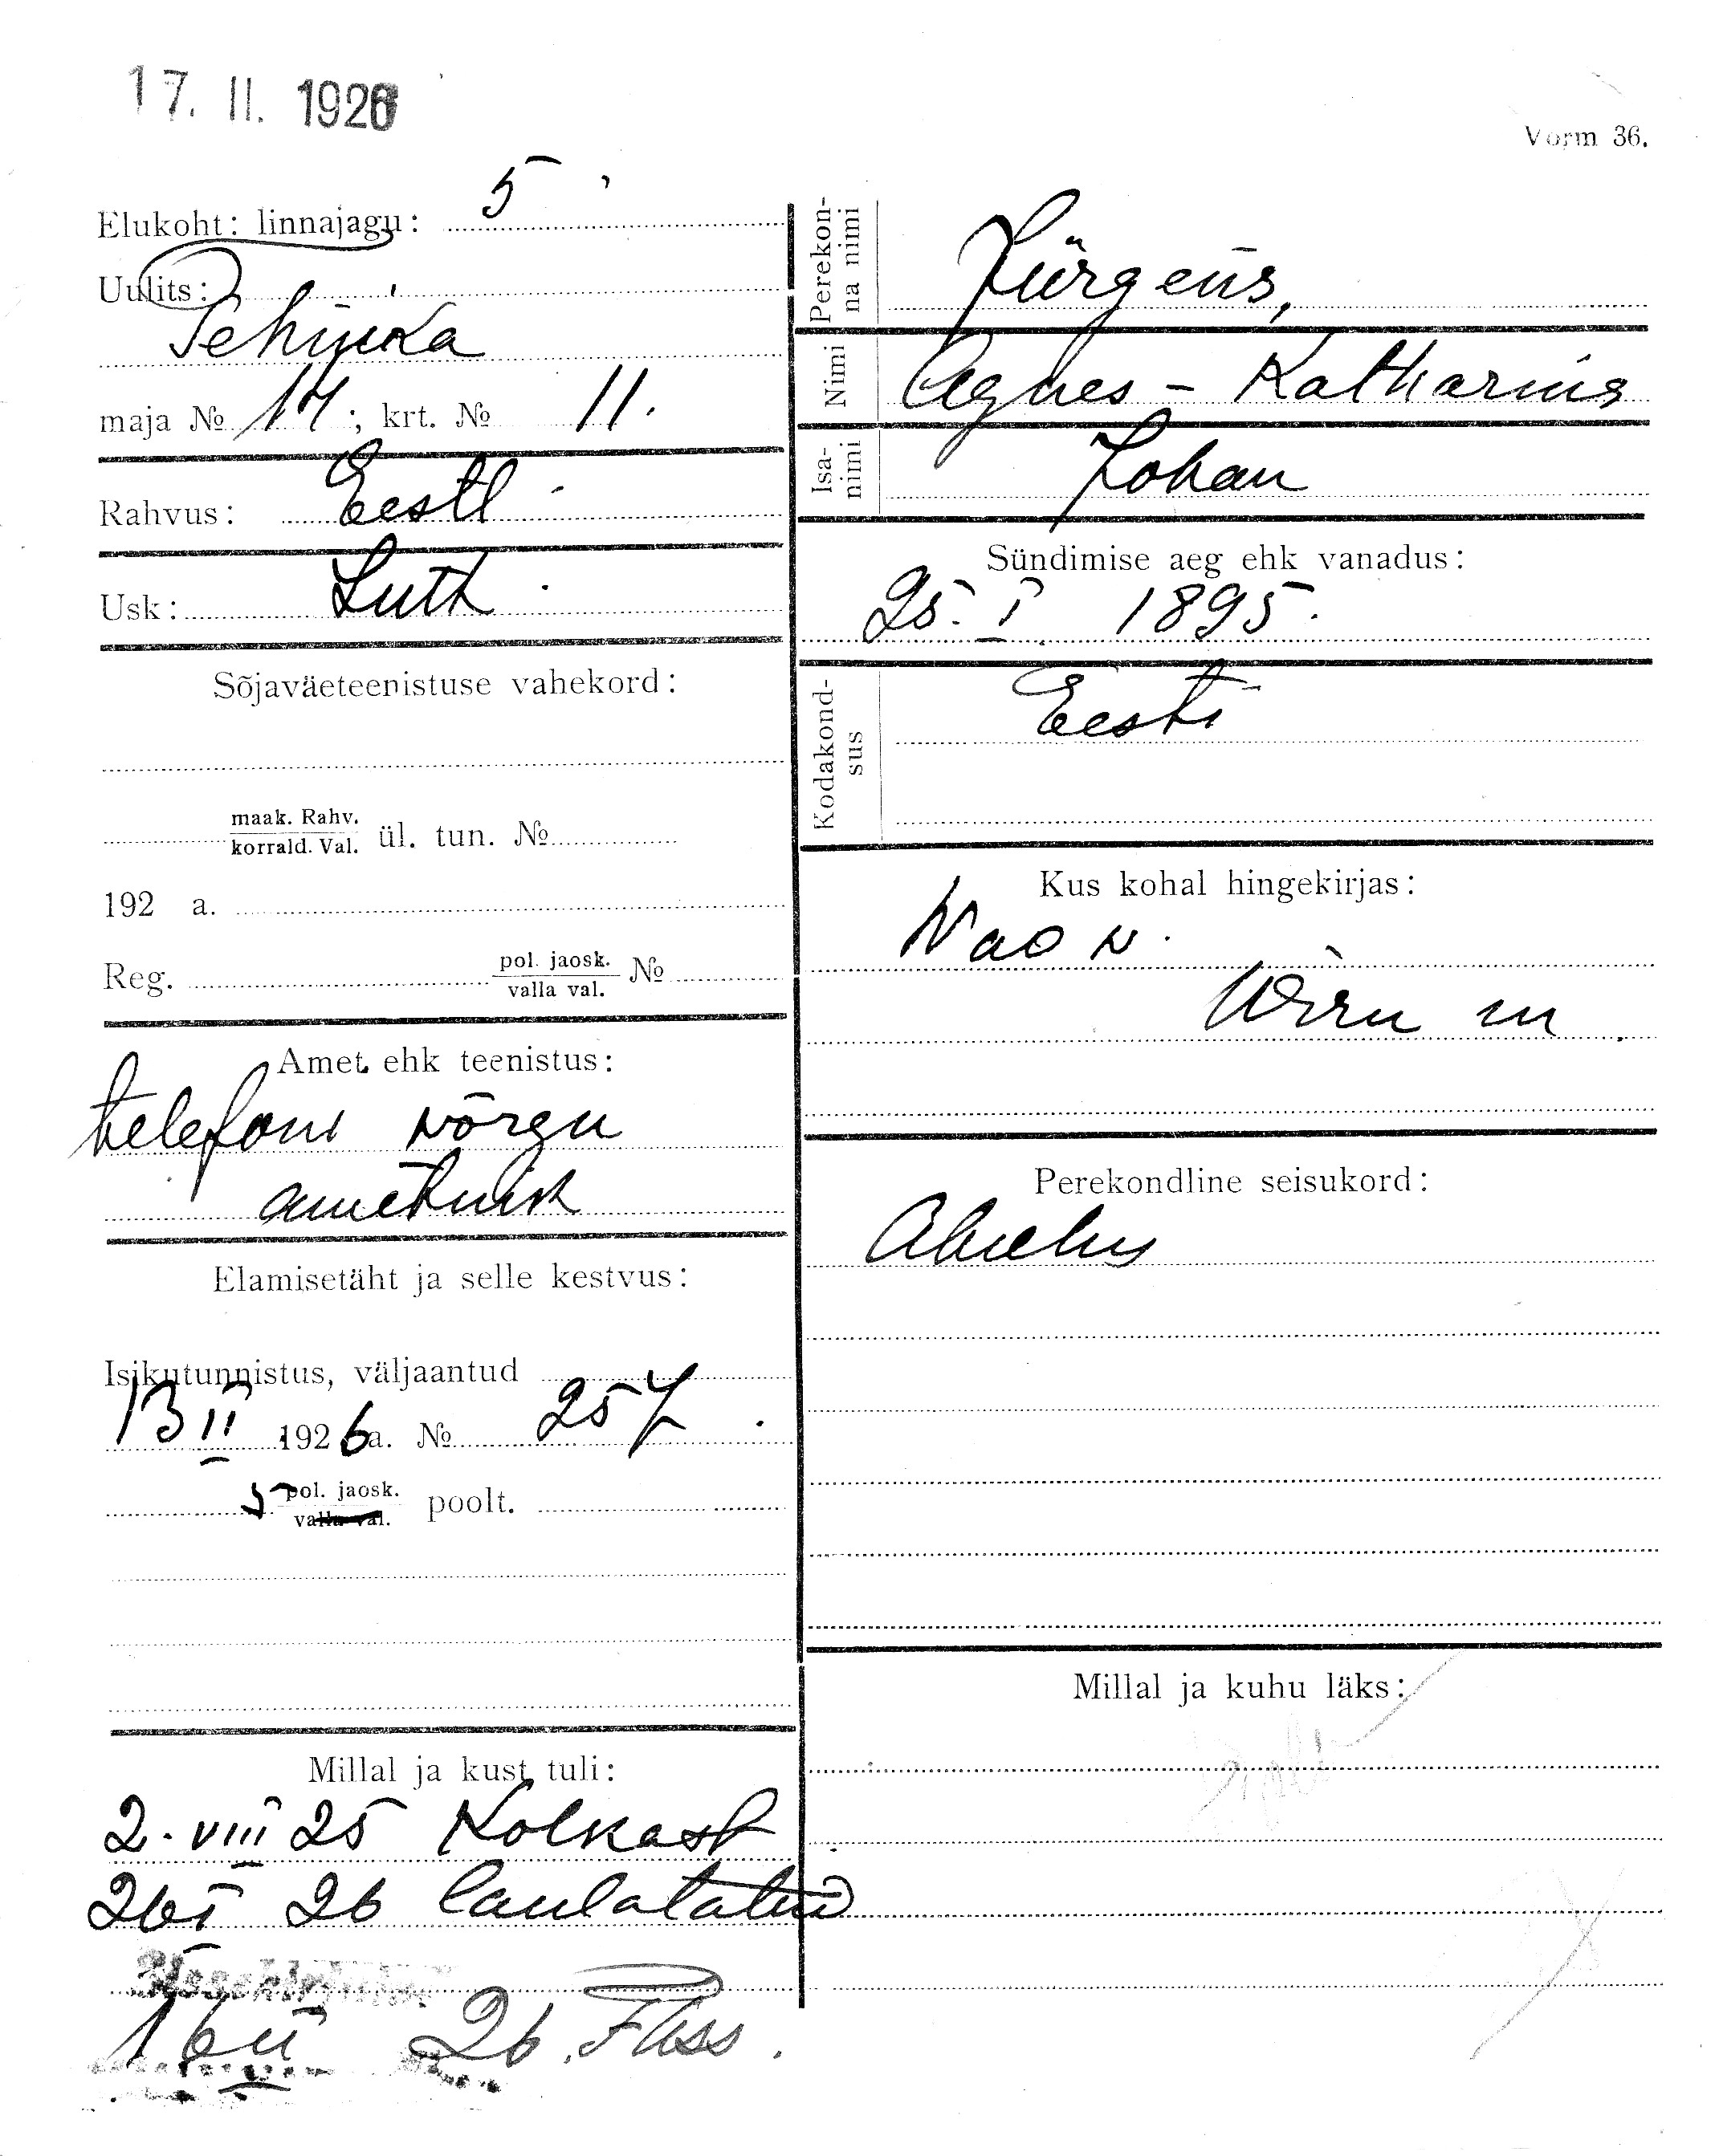 17. II. 1926
Vorm 36.
Elukoht: linnajagu: 5
Uulits:
Tehnika
maja № 14; krt. № 11.
Rahvus: Eesti
Usk: Luth
Sõjaväeteenistuse vahekord:
maak. Rahv.
korrald. Val. ül. tun. №
192 a.
Reg. pol. jaosk. №
valla val.
Amet ehk teenistus:
telefoni võrgu
ametnik
Elamisetäht ja selle kestvus:
Isikutunnistus, väljaantud
13 II 1926 a. № 257.
5 pol. jaosk. poolt.
valla val.
Millal ja kust tuli:
2. VIII 25 Kolkast
26 I 26 laulatatud
16 II 26.
Perekon-
na nimi
Jürgens,
Nimi Agnes - Katharina
Isa-
nimi
Johan
Sündimise aeg ehk vanadus:
25. I 1895.
Kodakond-
sus
Eesti
Kus kohal hingekirjas:
Wao w.
Wiru m
Perekondline seisukord:
Abielus
Millal ja kuhu läks: